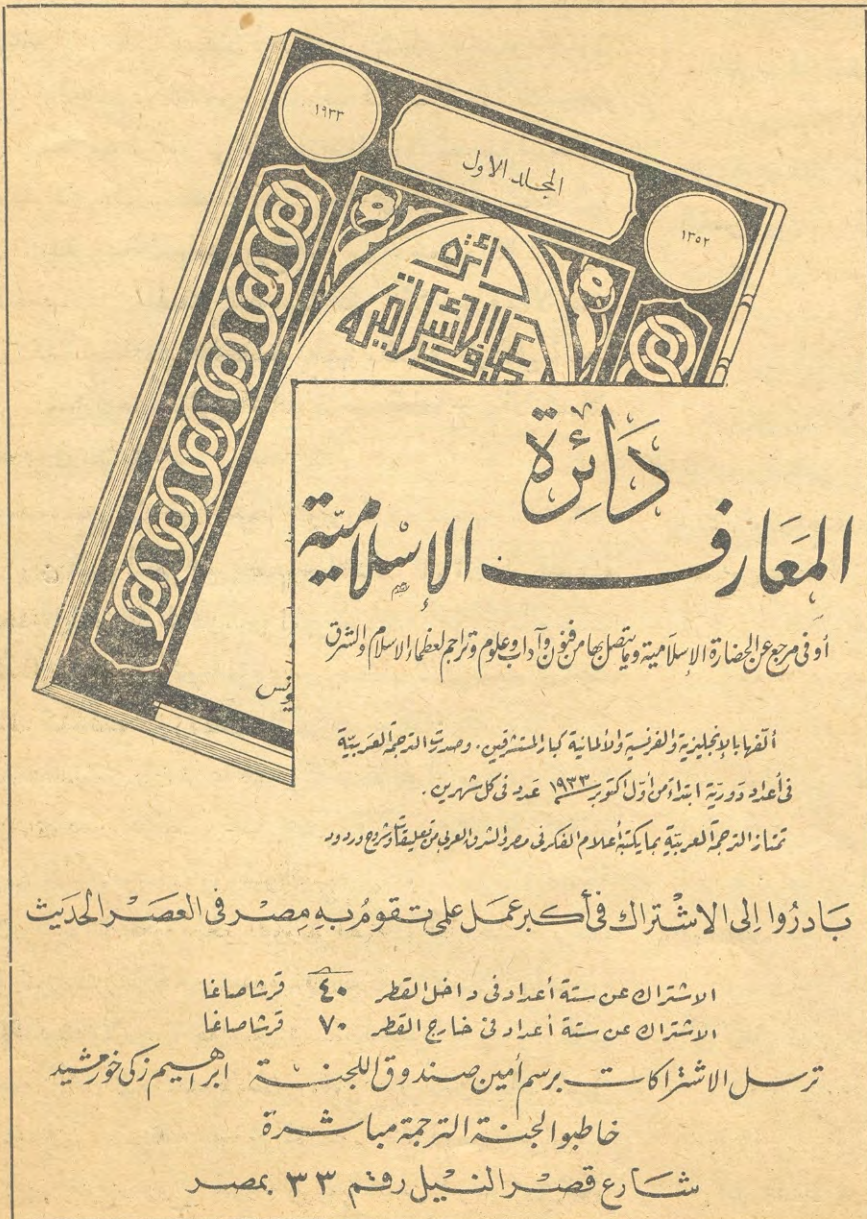 ١٩٣٣
المجلد الاول
١٣٥٢
دائرة
المعارف الإسلامية
دَائِرة
المعَارف الإسْلاميّة
أوفى مرجع عن الحضارة الإسلامية وما يتصل بها من فنون وآداب وعلوم وتراجم لعظماء الاسلام والشرق
ألفها بالإنجليزية والفرنسية والألمانية كبار المستشرقين. وصدرت الترجمة العربية
فى أعداد دورية ابتداء من أول اكتوبر ١٩٣٣ عدد فى كل شهرين.
تمتاز الترجمة العربية بما يكتبه أعلام الفكر فى مصر والشرق العربى من تعليقات وشروح وردود
بَادرُوا إلى الاشْتراك فى أكبر عمَل علمى تقومُ بهِ مِصْر فى العصْر الحديث
الاشتراك عن ستة أعداد فى داخل القطر ٤٠ قرشا صاغا
الاشتراك عن ستة أعداد فى خارج القطر ٧٠ قرشا صاغا
ترسل الاشتراكات برسم أمين صندوق اللجنة ابراهيم زكى خورشيد
خاطبوا لجنة الترجمة مباشرة
شارع قصر النيل رقم ٣٣ بمصر